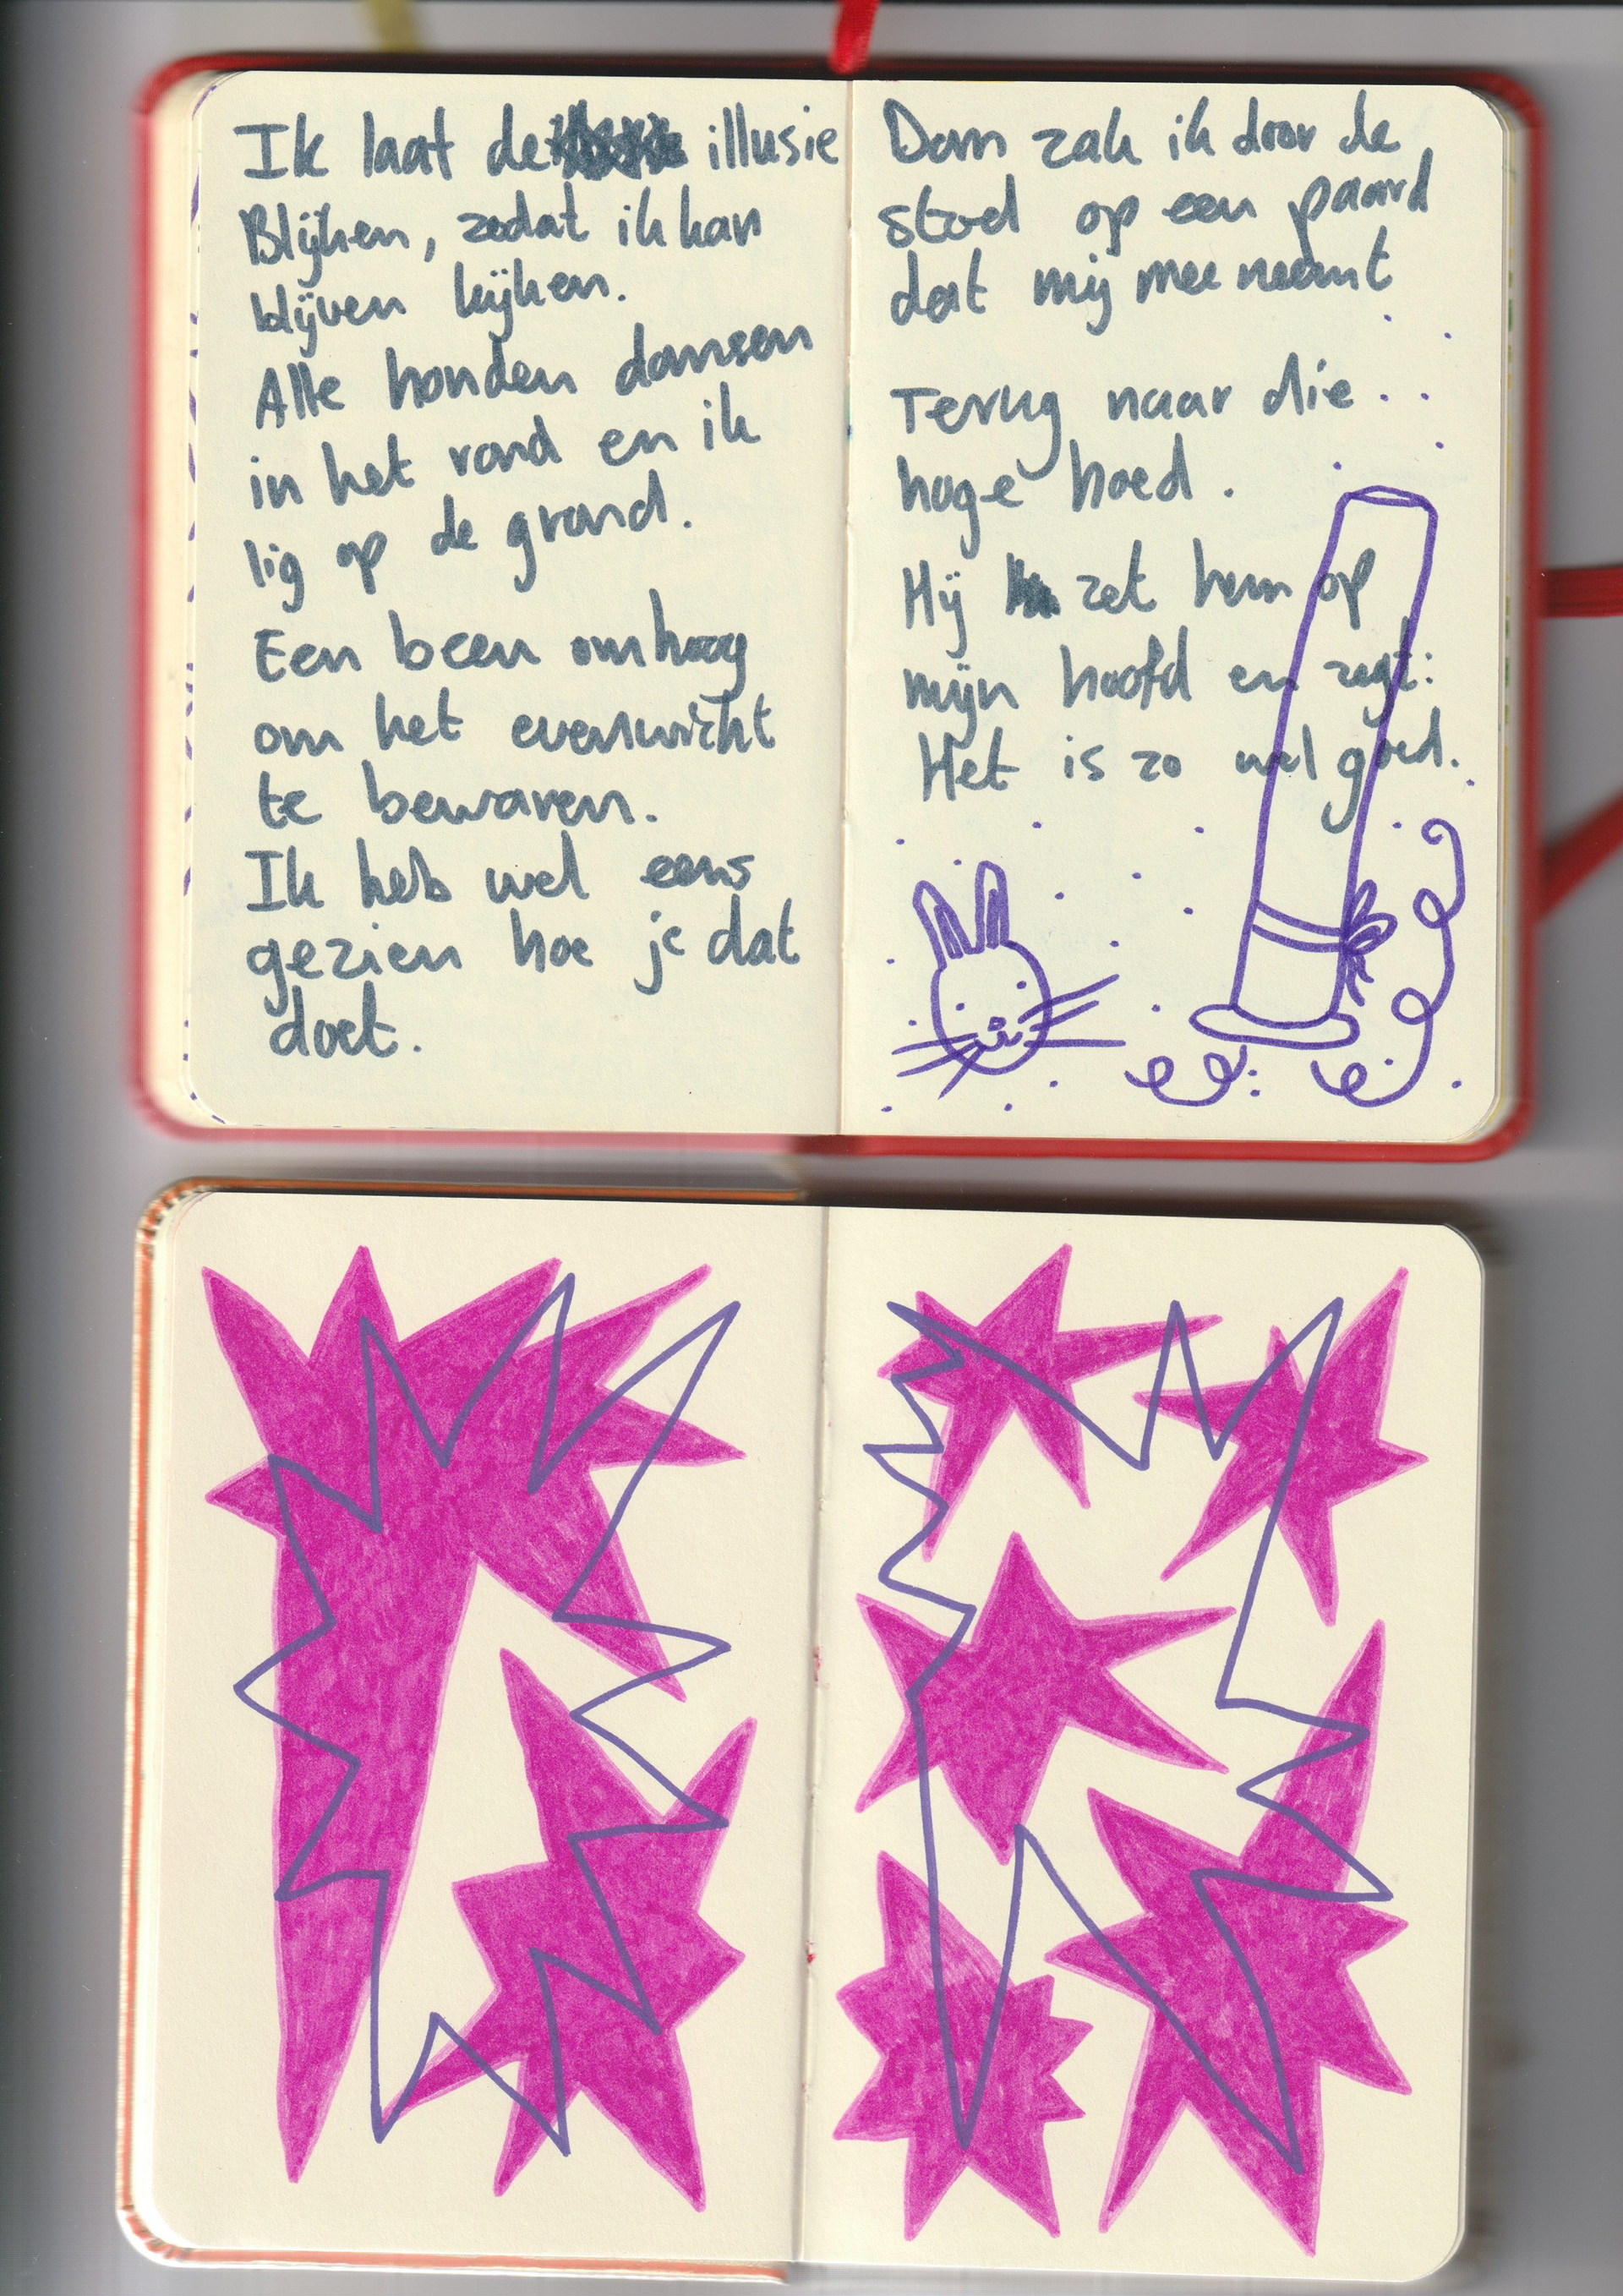 Ik laat de illusie
Blijken, zodat ik kan
blijven kijken.
Alle honden dansen
in het rond en ik
lig op de grond.
Een been omhoog
om het evenwicht
te bewaren.
Ik heb wel eens
gezien hoe je dat
doet.
Dan zak ik door de
stoel op een paard
dat mij mee neemt
Terug naar die . .
hoge hoed.
Hij zet hem op
mijn hoofd en zegt:
Het is zo wel goed.